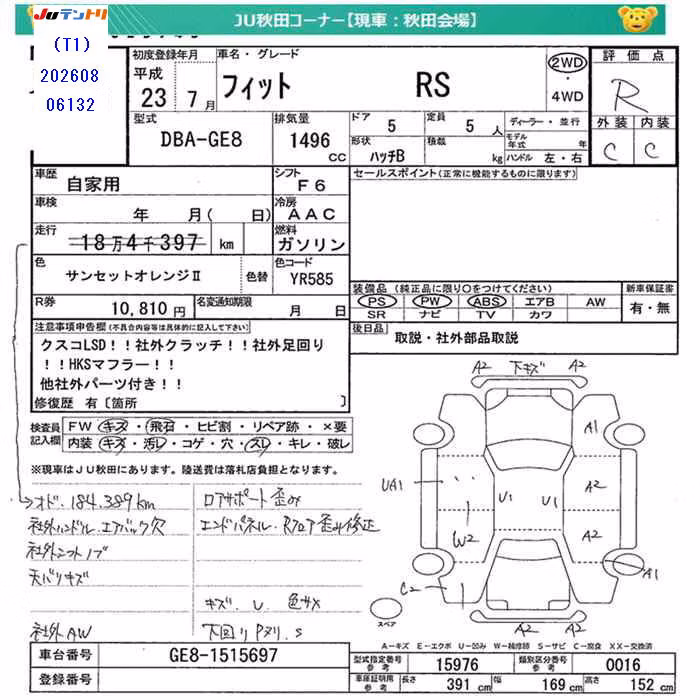 Juテントリ
JU秋田コーナー【現車：秋田会場】
(T1)
202608
06132
初度登録年月
平成
23 7月
車名・グレード
フィット RS
2WD
・
4WD
評価点
R
外装 内装
C C
型式
DBA-GE8
排気量
1496
CC
ドア
5
定員
5 人
形状
ハッチB
積載
kg
ディーラー・並行
モデル年式 年
ハンドル 左・右
車歴
自家用
シフト
F6
車検
年 月( 日)
冷房
AAC
走行
18万4千397 km
燃料
ガソリン
色
サンセットオレンジⅡ
色替
色コード
YR585
R券
10,810円
名変通知期限
月 日
セールスポイント(正常に機能するものに限ります)
装備品 (純正品に限り○をつけてください)
PS PW ABS エアB AW
SR ナビ TV カワ
新車保証書
有・無
後日品
取説・社外部品取説
注意事項申告欄(不具合内容等は具体的に記入して下さい)
クスコLSD！！社外クラッチ！！社外足回り
！！HKSマフラー！！
他社外パーツ付き！！
修復歴 有〔箇所 〕
検査員記入欄
FW キズ・飛石・ヒビ割・リペア跡・×要
内装 キズ・汚レ・コゲ・穴・スレ・キレ・破レ
※現車はJU秋田にあります。陸送費は落札店負担となります。
オド.184,389km
社外ハンドル.エアバック欠
社外シフトノブ
天バリキズ
社外AW
ロアサポート歪み
エンドパネル.Rフロア歪み修正
キズ.U.色サメ
下回りPヌリ.S
A2 下キズ A2
A1
UA1
U1 U1
A2
W2
A2
C2
A1
A2 A2
スペア
A−キズ E−エクボ U−凹み W−補修跡 S−サビ C−腐食 XX−交換済
車台番号
GE8-1515697
登録番号
型式指定番号
参考
15976
類別区分番号
参考
0016
車庫証明用
参考
長さ
391 cm
幅
169 cm
高さ
152 cm